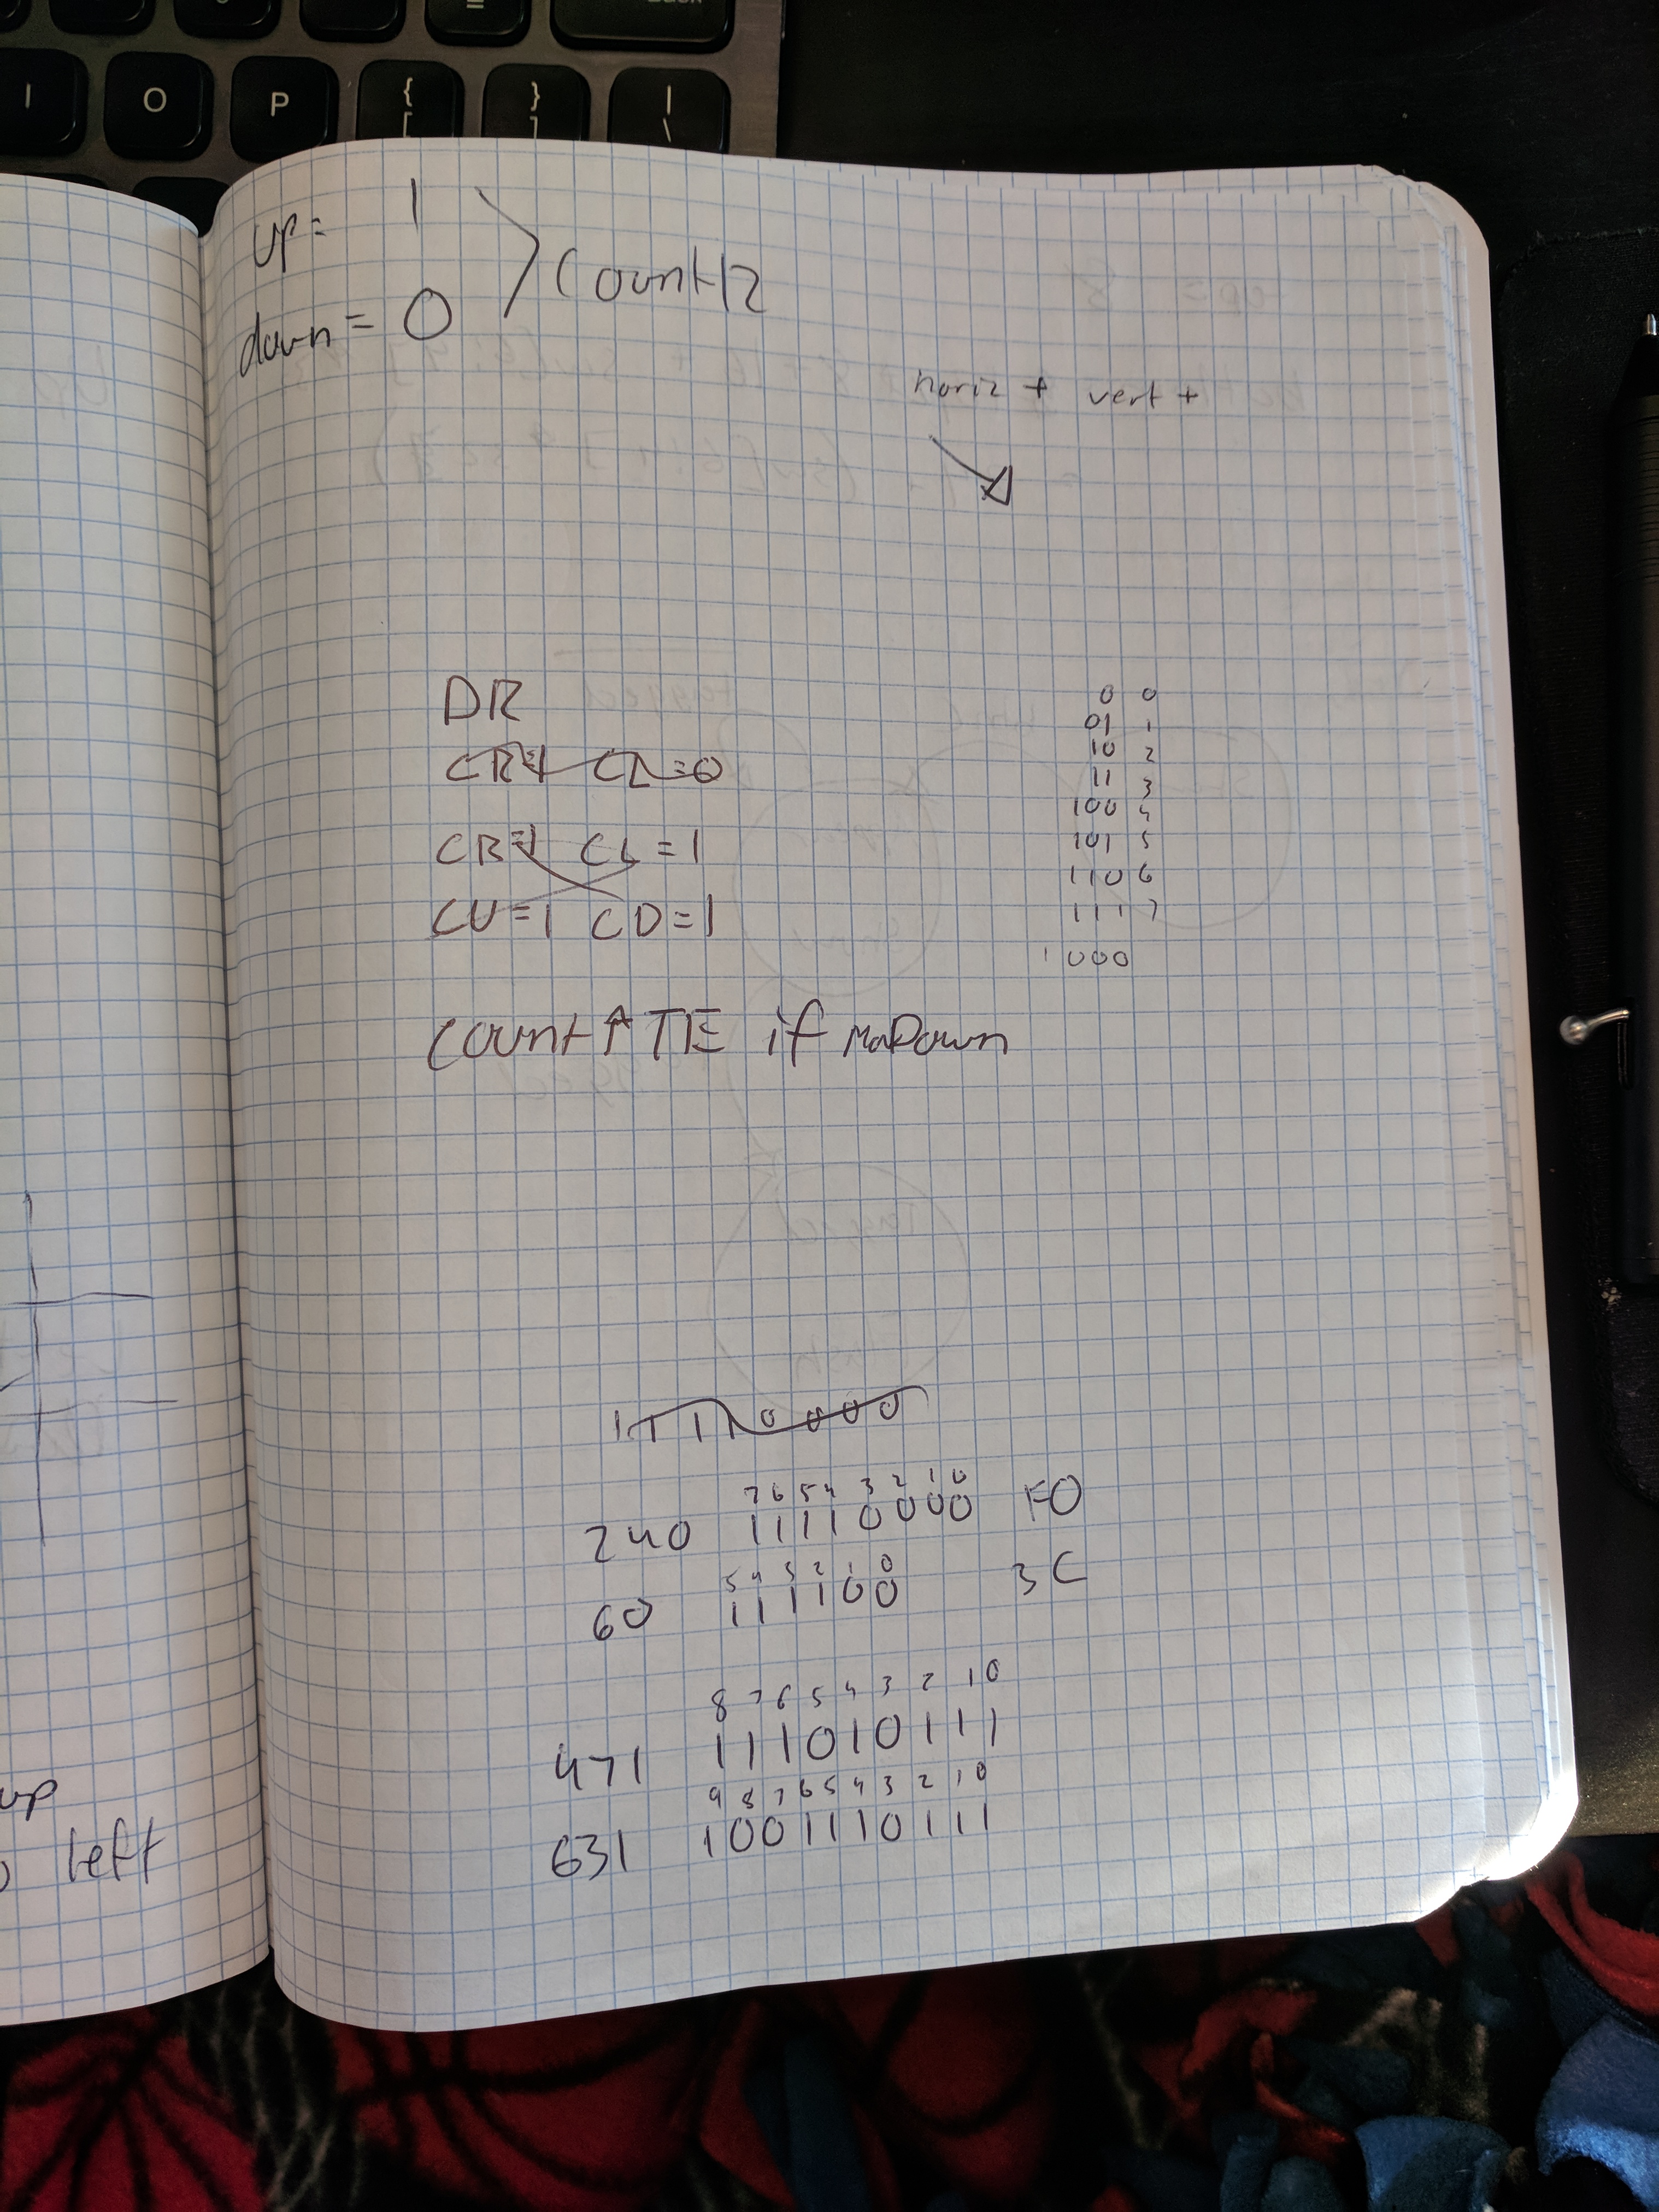 I O P { [ } ] | \
up= 1
down = 0
count12
horiz + vert +
DR
CR=1 CL=0
CR=1 CL=1
CU=1 CD=1
0 0
01 1
10 2
11 3
100 4
101 5
110 6
111 7
1000
count ATE if maDown
11110000
7 6 5 4 3 2 1 0
240 11110000 F0
5 4 3 2 1 0
60 111100 3C
8 7 6 5 4 3 2 1 0
471 111010111
9 8 7 6 5 4 3 2 1 0
631 1001110111
up
left